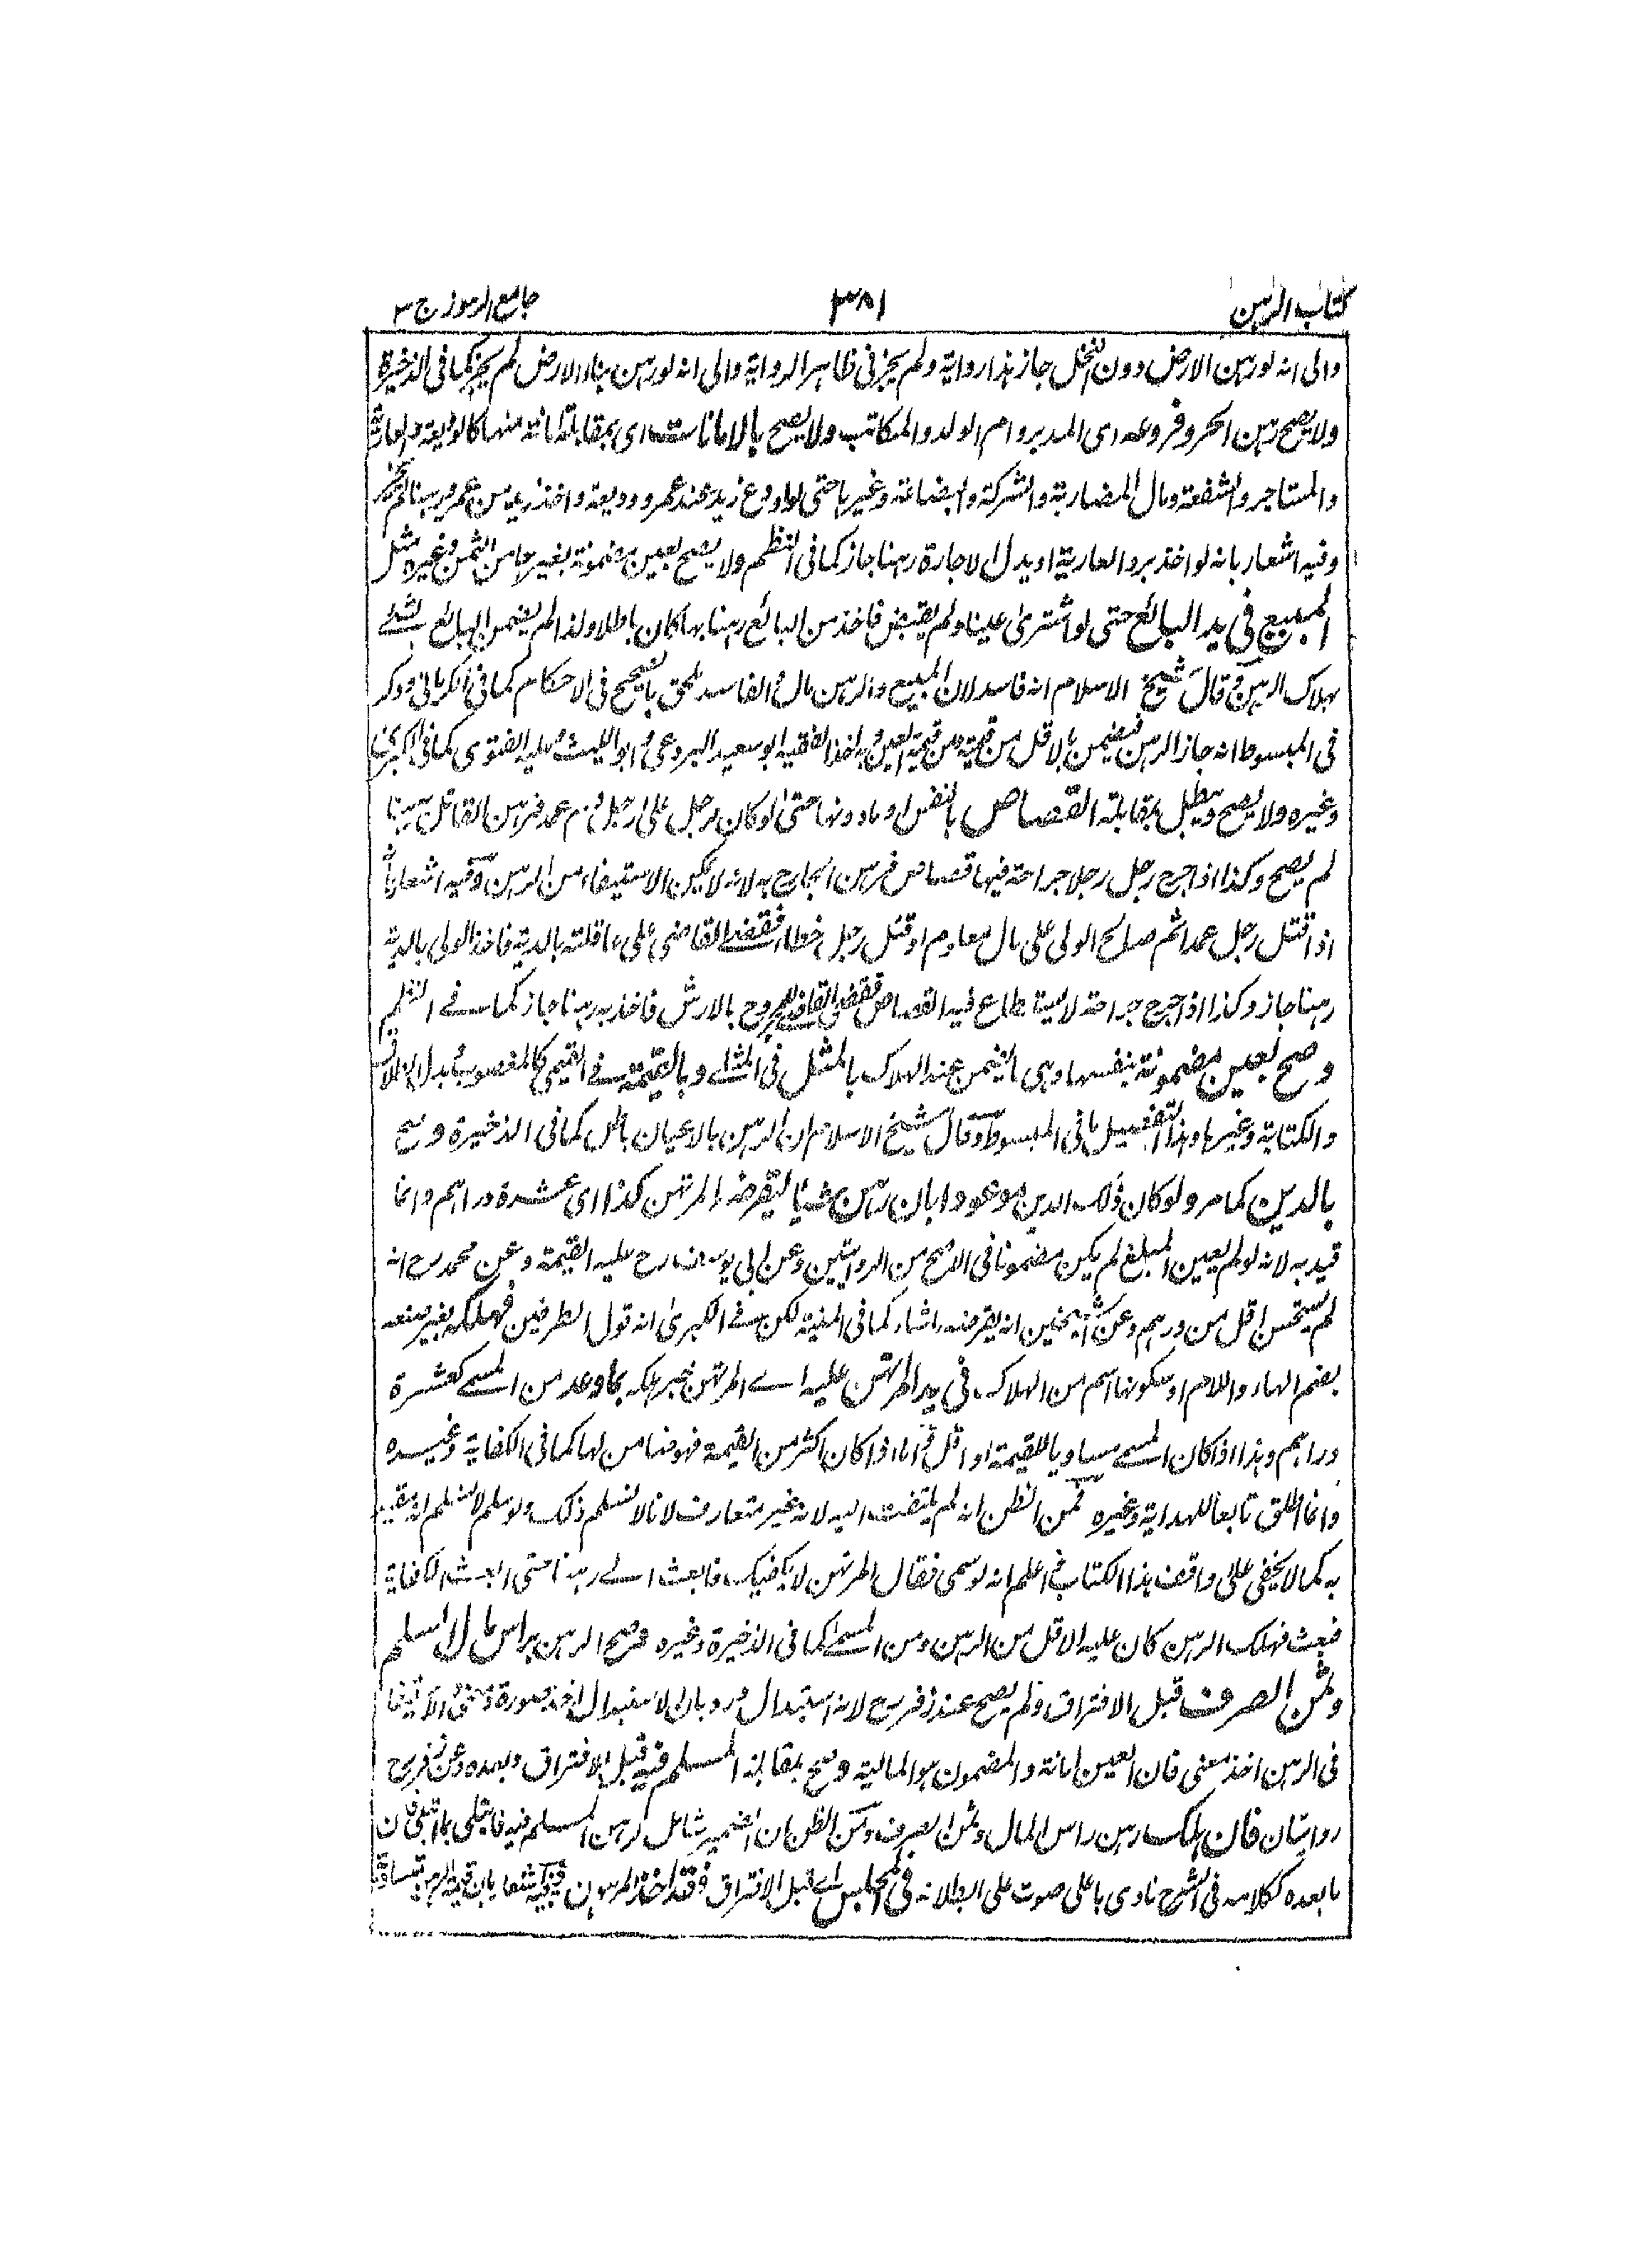 كتاب الرهن
٣٨١
جامع الرموز ج ٣
والى انه لو رهن الارض دون النخل جاز هذا رواية ولم يجز فى ظاهر الرواية والى انه لو رهن بناء الارض لم يجز كما فى الذخيرة
ولا يصح رهن الحر وفروعه اى المدبر وام الولد والمكاتب ولا يصح بالامانات اى بمقابلة امانة منها كالوديعة والعارية
والمستاجر والشفعة ومال المضاربة والشركة والبضاعة وغيرها حتى لو اودع زيد عند عمرو وديعة واخذ زيد من عمرو رهنا لم يجز
وفيه اشعار بانه لو اخذ برد العارية او بدل الاجارة رهنا جاز كما فى النظم ولا يصح بعين مضمونة بغيرها من الثمن وغيره مثل
المبيع فى يد البائع حتى لو اشترى عينا ولم يقبض فاخذ من البائع رهنا بها كان باطلا ولذا لم يضمن البائع بشئ
بهلاك الرهن وقال شيخ الاسلام انه فاسد لان المبيع والرهن مال والفاسد يلحق بالصحيح فى الاحكام كما فى الكرمانى وذكر
فى المبسوط انه جاز الرهن فيضمن بالاقل من قيمته ومن قيمة العين وبه اخذ الفقيه ابو سعيد البردعى وابو الليث وعليه الفتوى كما فى الكبرى
وغيره ولا يصح ويبطل بمقابلة القصاص بالنفس او ما دونها حتى لو كان لرجل على رجل دم عمد فرهن القاتل رهنا
لم يصح وكذا اذا جرح رجل رجلا جراحة فيها قصاص فرهن الجارح به لانه لا يمكن الاستيفاء من الرهن وفيه اشعار بانه
اذا قتل رجل عمدا ثم صالح الولى على مال معلوم او قتل رجل خطاء فقضى القاضى على عاقلته بالدية فاخذ الولى بالدية
رهنا جاز وكذا اذا جرح جراحة لا يستطاع فيه القصاص فقضى القاضى للمجروح بالارش فاخذ به رهنا جاز كما فى النظم
وصح بعين مضمونة بنفسها وهى ما يضمن عند الهلاك بالمثل فى المثلى وبالقيمة فى القيمى كالمغصوب وبدل
والكتابة وغيرها وهذا التفصيل ما فى المبسوط وقال شيخ الاسلام ان الرهن بالاعيان باطل كما فى الذخيرة وصح
بالدين كما مر ولو كان ذلك الدين موعودا بان رهن شيئا ليقرضه المرتهن كذا اى عشرة دراهم وانما
قيد به لانه لو لم يعين المبلغ لم يكن مضمونا فى الاصح من الروايتين وعن ابى يوسف رح عليه القيمة وعن محمد رح انه
لم يستحسن اقل من درهم وعن الشيخين انه يقرضه ما شاء كما فى المنية لكن فى الكبرى انه قول الطرفين فهلكه بغير صنعه
بضم الهاء واللام او سكونها اسم من الهلاك فى يد المرتهن عليه اى المرتهن خبر هلكه بما وعد من المسمى كعشرة
دراهم وهذا اذا كان المسمى مساويا للقيمة او اقل واما اذا كان اكثر من القيمة فهو ضامن لها كما فى الكفاية وغيره
وانما اطلق تابعا للهداية وغيره فمن الظن انه لم يلتفت اليه لانه غير متعارف لانا لا نسلم ذلك ولو سلم لا نسلم انه يقيد
به كما لا يخفى على واقف هذا الكتاب واعلم انه لو سمى فقال المرتهن لا يكفيك فابعث الى رهنا حتى ابعث الكفاية
فبعث فهلك الرهن كان عليه الاقل من الرهن ومن المسمى كما فى الذخيرة وغيره وصح الرهن براس مال السلم
وثمن الصرف قبل الافتراق ولم يصح عند زفر رح لانه استبدال ورد بان الاستبدال اخذ صورة ومعنى والاستيفاء
فى الرهن اخذ معنى فان العين امانة والمضمون هو المالية وصح بمقابلة المسلم فيه قبل الافتراق وبعده وعن زفر رح
روايتان فان هلك رهن راس المال وثمن الصرف ومن الظن ان الضمير شامل لرهن المسلم فيه فابتلى بما ابتلى فان
ما بعده ككلامه فى الشرح نادى باعلى صوت على ابطلانه فى المجلس اى قبل الافتراق فقد اخذ المرتهن وفيه اشعار بان قيمة الرهن